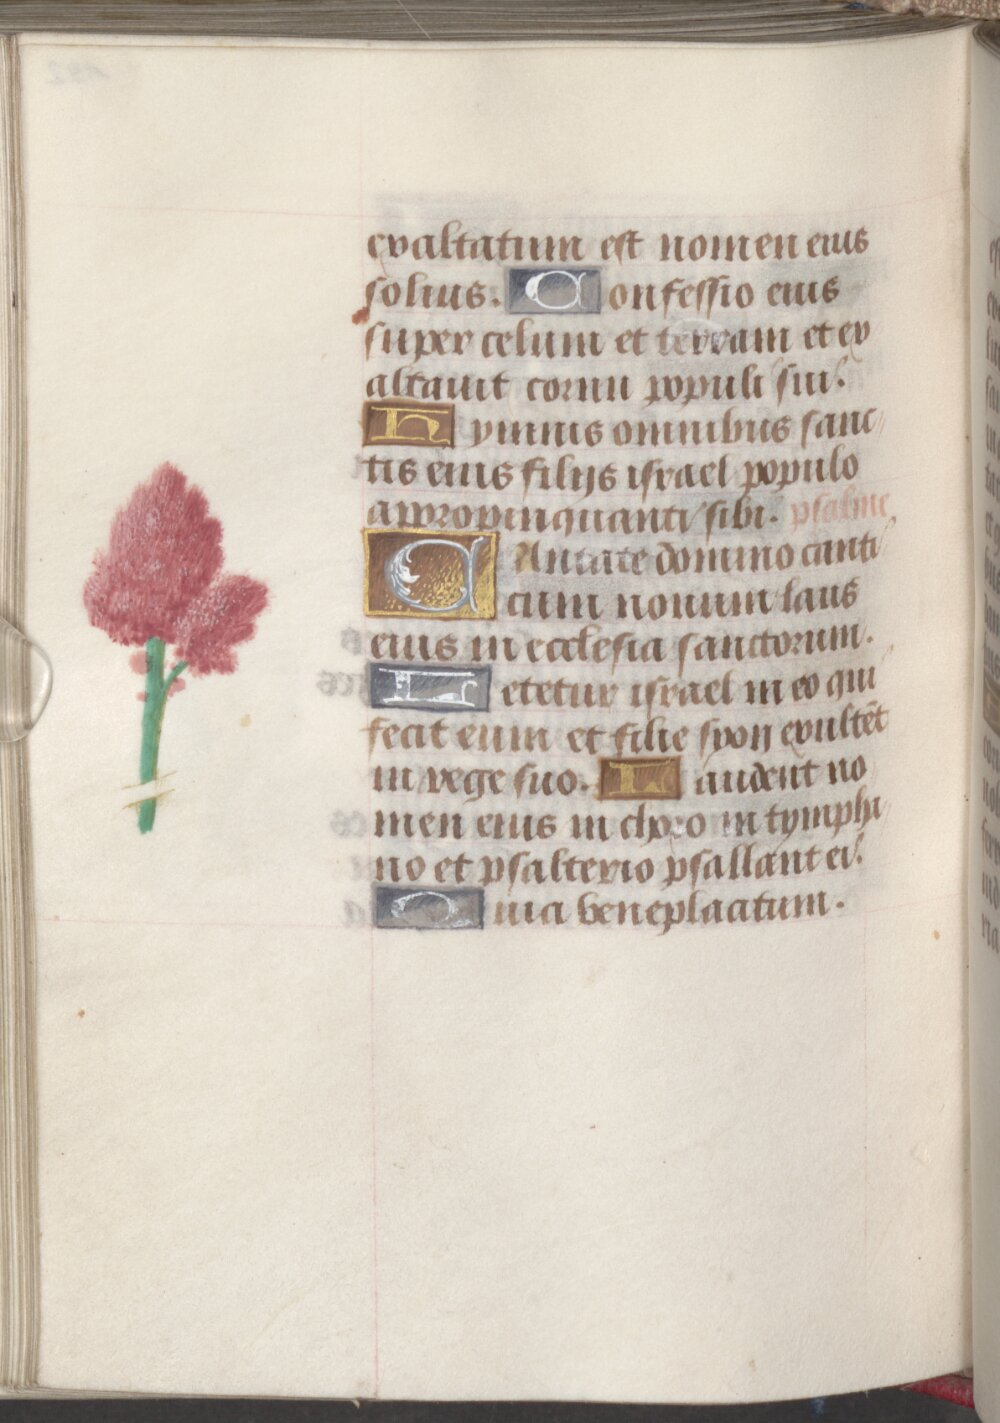 exaltatum est nomen eius
solius. Confessio eius
super celum et terram et ex
altauit cornu populi sui.
Hymnus omnibus sanc
tis eius filijs israel populo
appropinquanti sibi. psalme
CAntate domino canti
cum nouum laus
eius in ecclesia sanctorum.
Letetur israel in eo qui
fecit eum et filie syon exultēt
in rege suo. Laudent no
men eius in choro in tympha
no et psalterio psallant ei.
Quia beneplacitum.